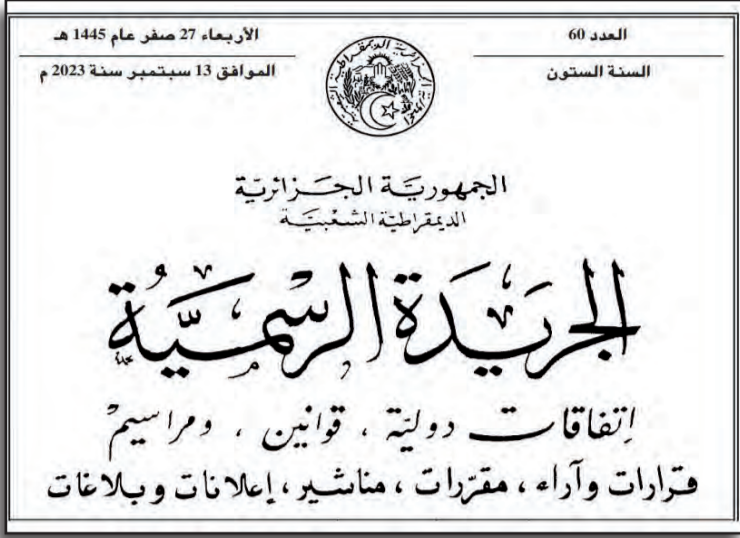 العدد 60
السنة الستون
الأربعاء 27 صفر عام 1445 هـ
الموافق 13 سبتمبر سنة 2023 م
الجمهوريّة الجزائريّة
الديمقراطيّة الشّعبيّة
الجريدة الرسميّة
إتفاقات دوليّة ، قوانين ، ومراسيم
قرارات وآراء ، مقرّرات ، مناشير ، إعلانات وبلاغات